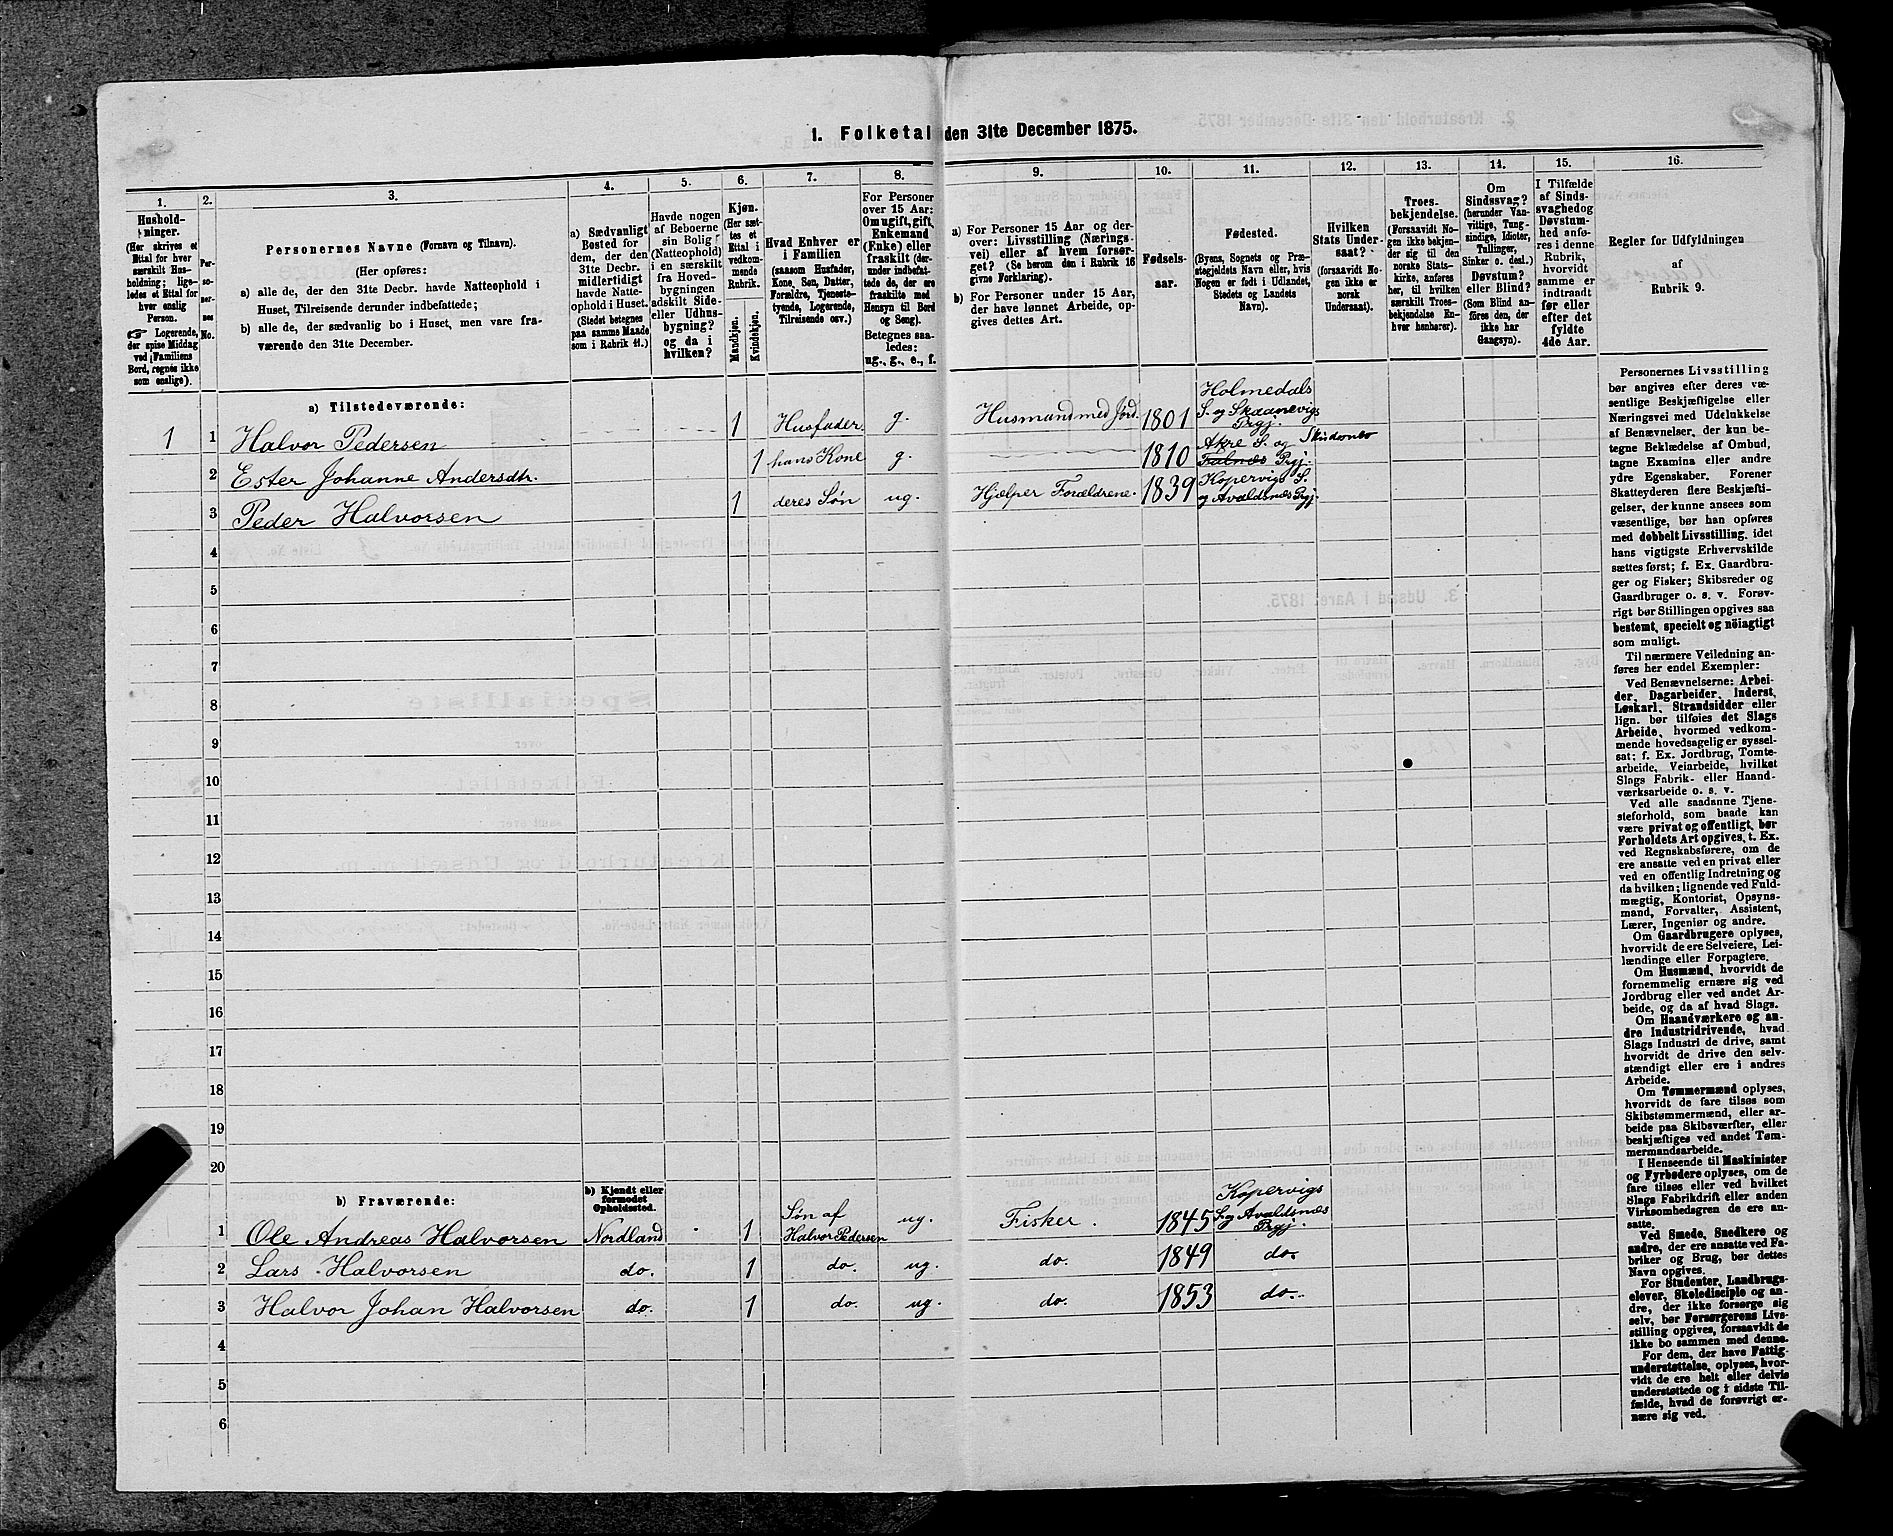 1. Folketal den 31te December 1875.
1.
2.
3.
4.
5.
6.
7.
8.
9.
10.
11.
12.
13.
14.
15.
16.
Hushold-
ninger.
(Her skrives et
Ettal for hver
særskilt Hus-
holdning; lige-
ledes et Ettal for
hver enslig
Person.
☞ Logerende,
der spise Middag
ved Familiens
Bord, regnes ikke
som enslige).
Per-
so-
ner-
nes
No.
Personernes Navne (Fornavn og Tilnavn).
(Her opføres:
a) alle de, der den 31te Decbr. havde Natteophold i
Huset, Tilreisende derunder indbefattede;
b) alle de, der sædvanlig bo i Huset, men vare fra-
værende den 31te December.
a) Sædvanligt
Bosted for
dem, der den
31te Decbr.
midlertidigt
havde Natte-
ophold i Huset.
(Stedet betegnes
paa samme Maade
som i Rubrik 11.)
Havde nogen
af Beboerne
sin Bolig
(Natteophold)
i en særskilt
fra Hoved-
bygningen
adskilt Side-
eller Udhus-
bygning?
og da i
hvilken?
Kjøn.
(Her sæt-
tes et
Ettal i
vedkom-
mende
Rubrik.
Mandkjøn.
Kvindekjøn.
Hvad Enhver er
i Familien
(saasom Husfader,
Kone, Søn, Datter,
Forældre, Tjeneste-
tyende, Logerende,
Tilreisende osv.)
For Personer
over 15 Aar:
Om ugift, gift,
Enkemand
(Enke) eller
fraskilt (der-
under indbefat-
tede de, der ere
fraskilte med
Hensyn til Bord
og Seng).
Betegnes saa-
ledes:
ug., g., e., f.
a) For Personer 15 Aar og der-
over: Livsstilling (Nærings-
vei) eller af hvem forsør-
get? (Se herom den i Rubrik 16
givne Forklaring).
b) For Personer under 15 Aar,
der have lønnet Arbeide, op-
gives dettes Art.
Fødsels-
aar.
Fødested.
(Byens, Sognets og Præ-
stegjeldets Navn eller, hvis
Nogen er født i Udlandet,
Stedets og Landets
Navn).
Hvilken
Stats Under-
saat?
(forsaavidt No-
gen ikke er
norsk
Undersaat).
Troes-
bekjendelse.
(Forsaavidt No-
gen ikke bekjen-
der sig til den
norske Stats-
kirke, anføres
her, til hvilken
særskilt Troes-
bekjendelse En-
hver henhører).
Om
Sindssvag?
(herunder Van-
vittige, Tung-
sindige, Idioter,
Tullinger,
Sinker o. desl.)
Døvstum?
eller Blind?
(Som Blind an-
føres den, der
ikke har
Gangsyn).
I Tilfælde
af Sinds-
svaghed og
Døvstum-
hed anfø-
res i denne
Rubrik,
hvorvidt
samme er
indtraadt
før eller
efter det
fyldte
4de Aar.
Regler for Udfyldningen
af
Rubrik 9.
a) Tilstedeværende:
1 1 Halvor Pedersen 1 Husfader g. Husmand med Jord. 1801 Holmedals S. og Skaanevigs Prgj.
2 Ester Johanne Andersdtr. 1 hans Kone g. 1810 Akre S. og Skudesnes Falnæs Prgj.
3 Peder Halvorsen 1 deres Søn ug. Hjælper Forældrene. 1839 Kopervigs S. og Avaldsnæs Prgj.
4
5
6
7
8
9
10
11
12
13
14
15
16
17
18
19
20
b) Fraværende:
b) Kjendt eller
formodet
Opholdssted.
1 Ole Andreas Halvorsen Nordland 1 Søn af Halvor Pedersen ug. Fisker. 1845 Kopervigs S. og Avaldsnæs Prgj.
2 Lars Halvorsen do. 1 do. ug. do. 1849 do.
3 Halvor Johan Halvorsen do. 1 do. ug. do. 1853 do.
4
5
6
Personernes Livsstilling
bør angives efter deres væ-
sentlige Beskjæftigelse eller
Næringsvei med Udelukkelse
af Benævnelser, der kun be-
tegne Beklædelse af Ombud,
tagne Examina eller andre
ydre Egenskaber. Forener
Skatteyderen flere Beskjæfti-
gelser, der kunne ansees som
væsentlige, bør han opføres
med dobbelt Livsstilling, idet
hans vigtigste Erhvervskilde
sættes først; f. Ex. Gaardbru-
ger og Fisker; Skibsreder og
Gaardbruger o. s. v. Forøv-
rigt bør Stillingen opgives saa
bestemt, specielt og nöiagtigt
som muligt.
Til nærmere Veiledning an-
føres her endel Exempler:
Ved Benævnelserne: Arbei-
der, Dagarbeider, Inderst,
Løskarl, Strandsidder eller
lign. bør tilføies det Slags
Arbeide, hvormed vedkom-
mende hovedsagelig er syssel-
sat; f. Ex. Jordbrug, Tomte-
arbeide, Veiarbeide, hvilket
Slags Fabrik- eller Haand-
værksarbeide o. s. v.
Ved alle saadanne Tjene-
steforhold, som baade kan
være privat og offentligt, bør
Forholdets Art opgives, t. Ex.
ved Regnskabsførere, om de
ere ansatte ved en privat eller
ved en offentlig Indretning og
da hvilken; lignende ved Fuld-
mægtig, Kontorist, Opsyns-
mand, Forvalter, Assistent,
Lærer, Ingeniør og andre.
Om Gaardbrugere oplyses,
hvorvidt de ere Selveiere, Lei-
lændinge eller Forpagtere.
Om Husmænd, hvorvidt de
fornemmelig ernære sig ved
Jordbrug eller ved andet Ar-
beide, og da af hvad Slags.
Om Haandværkere og an-
dre Industridrivende, hvad
Slags Industri de drive, samt
hvorvidt de drive den selv-
stændigt eller ere i andres
Arbeide.
Om Tømmermænd oplyses,
hvorvidt de fare tilsøs som
Skibstømmermænd, eller ar-
beide paa Skibsværfter, eller
beskjæftiges ved andet Tøm-
mermandsarbeide.
I Henseende til Maskinister
og Fyrbødere oplyses, om de
fare tilsøs eller ved hvilket
Slags Fabrikdrift eller anden
Virksomhedsgren de ere an-
satte.
Ved Smede, Snedkere og
andre, der ere ansatte ved Fa-
briker og Brug, bør dettes
Navn opgives.
For Studenter, Landbrugs-
elever, Skoledisciple og an-
dre, der ikke forsørge sig
selv, bør Forsørgerens Livs-
stilling opgives, forsaavidt de
ikke bo sammen med denne.
For dem, der have Fattig-
understøttelse, oplyses, hvor-
vidt de ere helt eller delvis
understøttede og i sidste Til-
fælde, hvad de forøvrigt er-
nære sig ved.